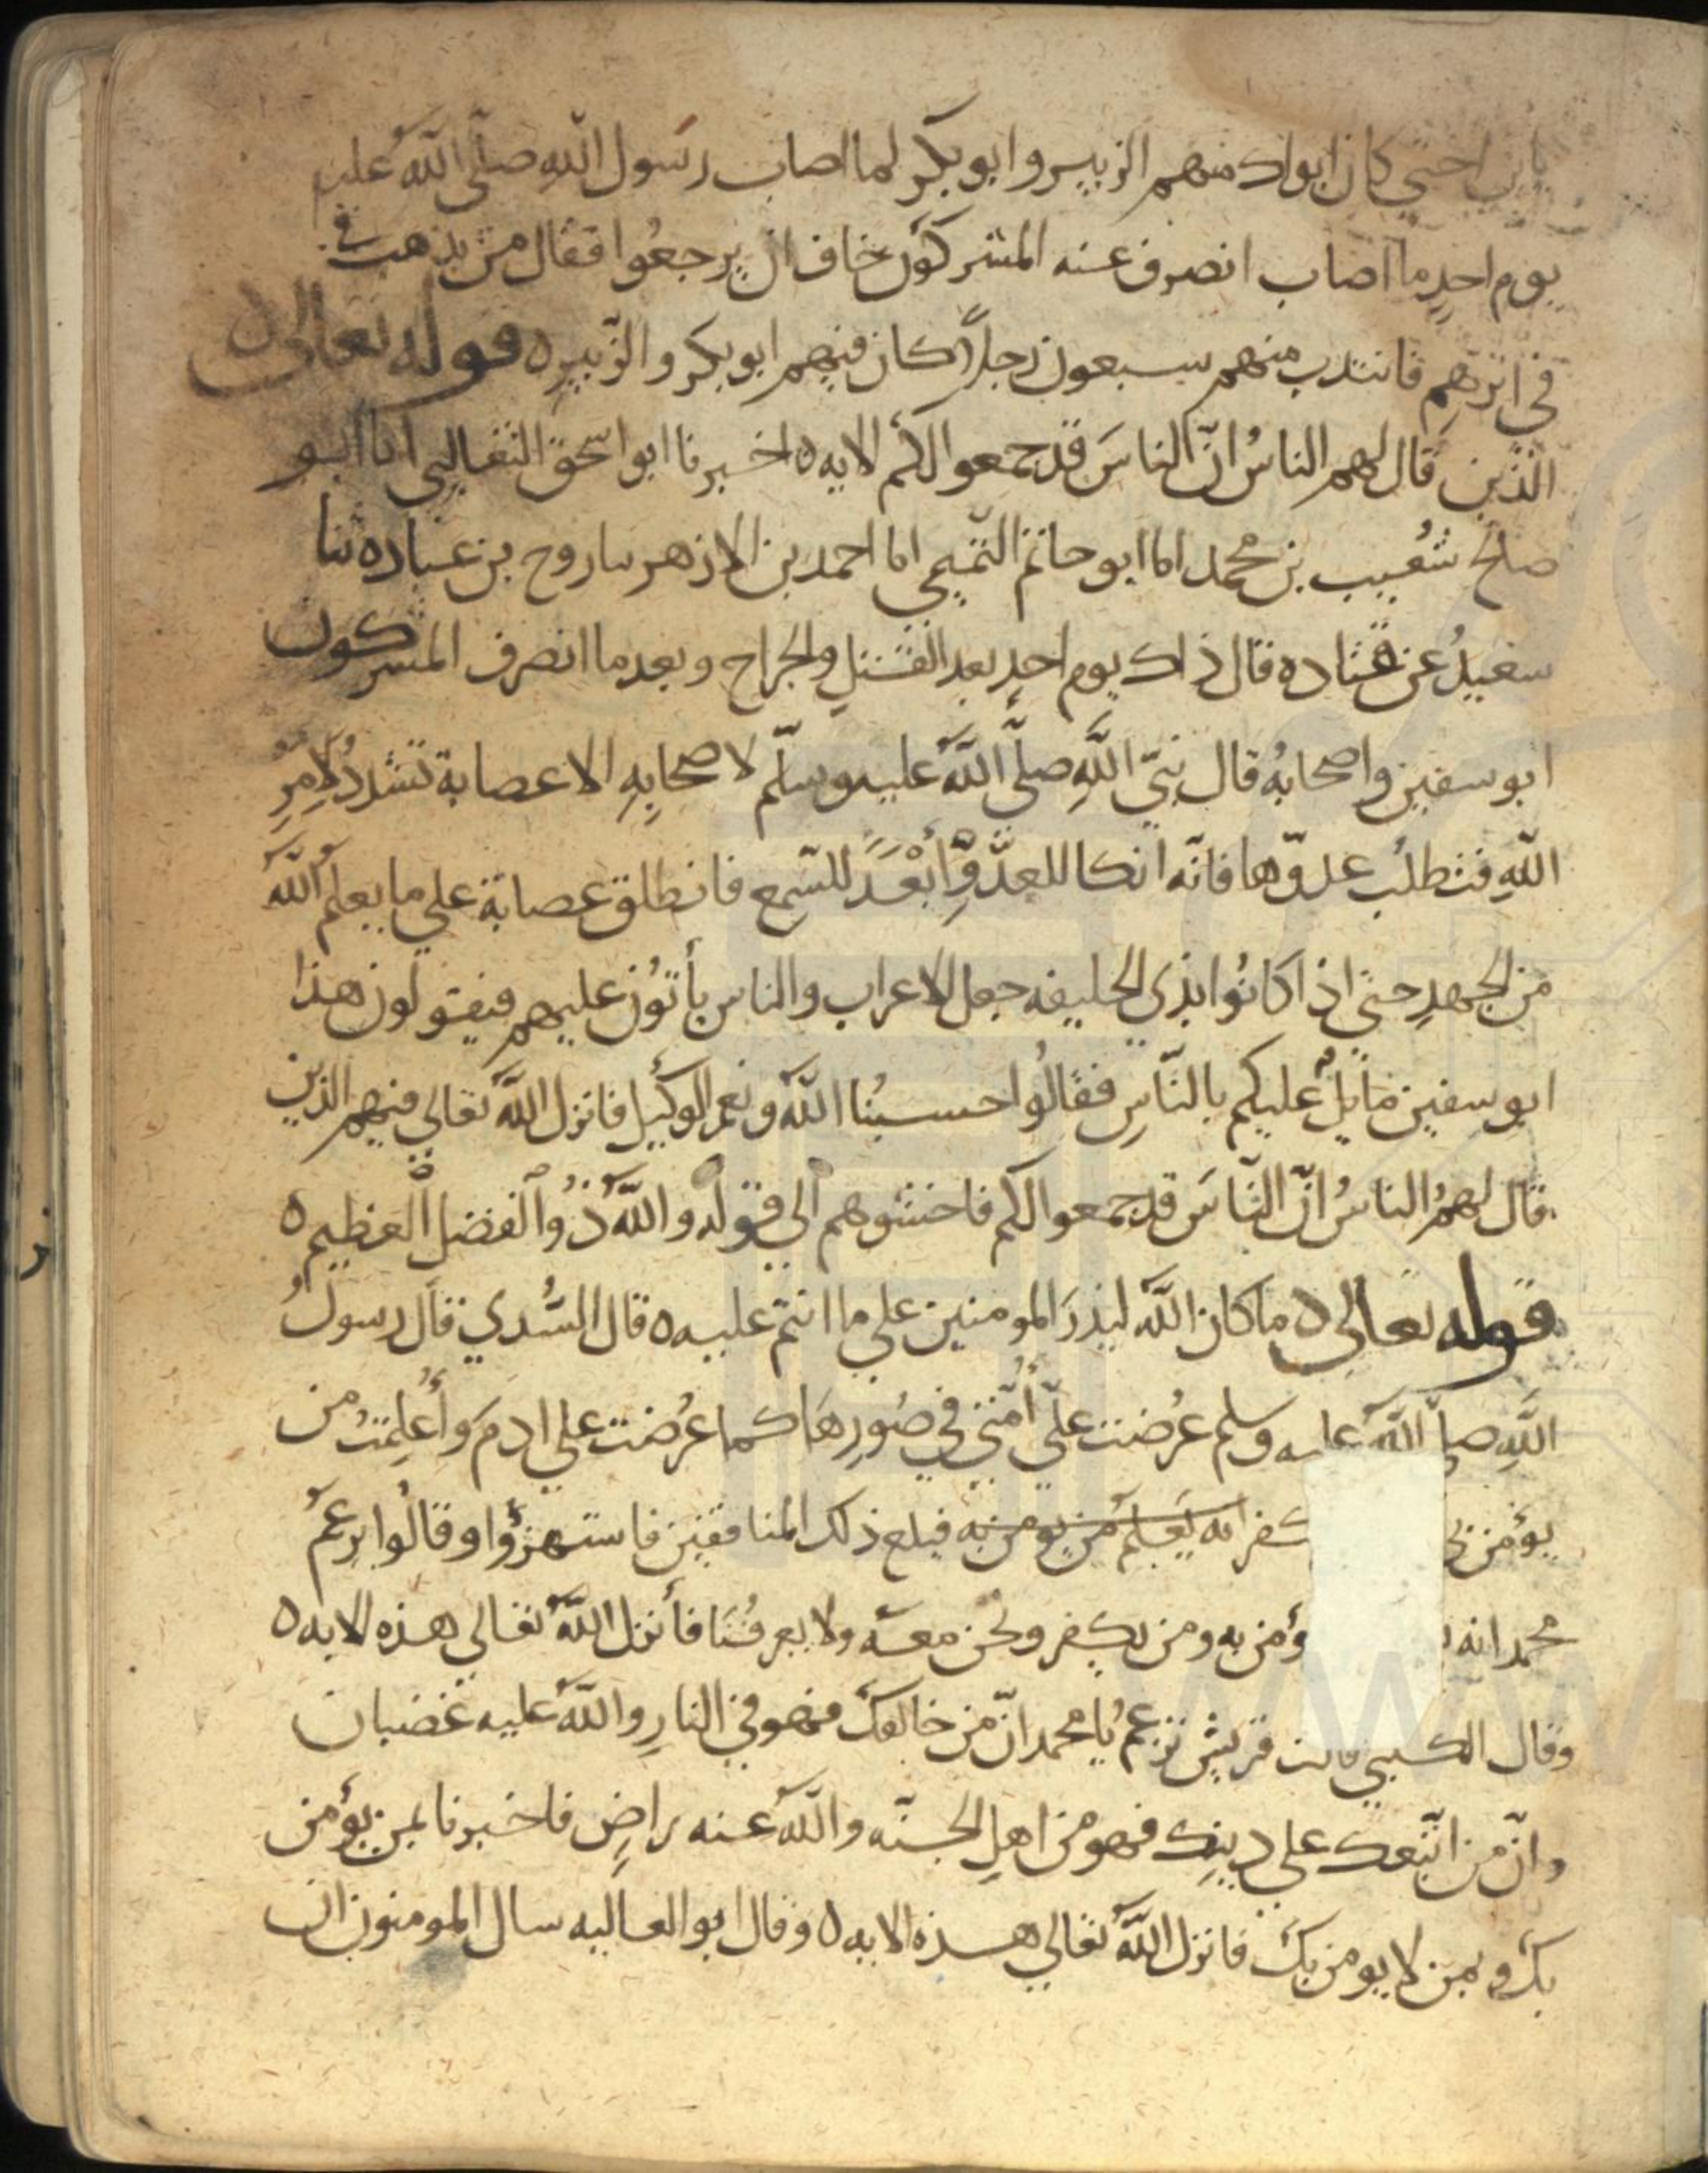 يا بن اختي كان ابواك منهم الزبير وابو بكر لما اصاب رسول الله صلى الله عليه
يوم احد ما اصاب انصرف عنه المشركون خاف ان يرجعوا فقال من يذهب في
في اثرهم فانتدب منهم سبعون رجلا كان فيهم ابو بكر والزبير ه قوله تعالى
الذين قال لهم الناس ان الناس قد جمعوا لكم الايه ه اخبرنا ابو اسحق الثعالبي انا ابو
صالح شعيب بن محمد انا ابو حاتم التميمي انا احمد بن الازهر نا روح بن عباده ثنا
سعيد عن قتاده قال ذاك يوم احد بعد القتل والجراح وبعد ما انصرف المشركون
ابو سفين واصحابه قال نبي الله صلى الله عليه وسلم لاصحابه الا عصابة تشدد لامر
الله فتطلب عدوها فانه انكا للعدو وابعد للسمع فانطلق عصابة علي ما يعلم الله
من الجهد حتى اذا كانوا بذى الحليفه جعل الاعراب والناس يأتون عليهم فيقولون هذا
ابو سفين مايل عليكم بالناس فقالوا حسبنا الله ونعم الوكيل فانزل الله تعالي فيهم الذين
قال لهم الناس ان الناس قد جمعوا لكم فاخشوهم الي قوله والله ذو الفضل العظيم ه
قوله تعالى ه ما كان الله ليذر المومنين علي ما انتم عليه ه قال السدي قال رسول
الله صلى الله عليه وسلم عرضت علي أمتي في صورها كما عرضت علي ادم وأعلمت من
يؤمن لي كفر انه يعلم من يومن به فبلغ ذلك المنافقين فاستهزؤا وقالوا يزعم
محمد انه ؤمن به ومن يكفر ونحن معه ولا يعرفنا فأنزل الله تعالي هذه الايه ه
وقال الكلبي قالت قريش تزعم يا محمد ان من خالفك فهو في النار والله عليه غضبان
وان من اتبعك علي دينك فهو من اهل الجنه والله عنه راض فاخبرنا بمن يؤمن
بك وبمن لا يومن بك فانزل الله تعالي هذه الايه ه وقال ابو العاليه سال المومنون ان